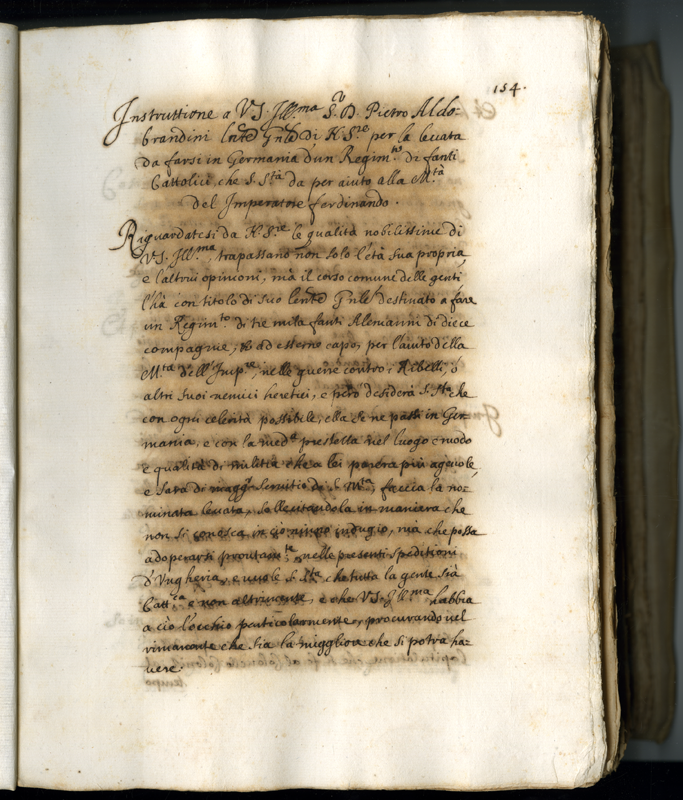 154.
Instruttione a VS. Ill.ma S.r D. Pietro Aldo-
brandini Lnte Gnle di N. S.re per la levata
da farsi in Germania d'un Regim.to di fanti
Cattolici, che S. S.tà da per aiuto alla M.tà
del Imperatore ferdinando.
Riguardatesi da N. S.re le qualità nobilissime di
VS. Ill.ma, trapassano non solo l'età sua propria,
e l'altrui opinioni, mà il corso comune delle genti
l'hà con titolo di suo Lente Gnle destinato a fare
un Regim.to di tre mila fanti Alemanni di diece
compagnie, & ad esserne capo, per l'aiuto della
M.tà dell'Imp.re, nelle guerre contro i Ribelli, ó
altri suoi nemici heretici, e però desidera S. S.tà che
con ogni celerità possibile, ella se ne passi in Ger-
mania, e con la med.a prestezza nel luogo e modo
e qualità di militia che a lei parera più agevole,
e sarà di magg.r servitio di S. M.tà, faccia la no-
minata levata, sollecitandola in maniera che
non si conosca in ciò niuno indugio, mà che possa
adoperarsi prontam.te, nelle presenti speditioni
d'Ungheria, e vuole S. S.tà che tutta la gente sià
Catt.ca e non altrimente, e che VS. Ill.ma habbia
a ciò l'occhio particolarmente, procurando nel
rimanente che sia la miggliore che si potrà ha-
vere.